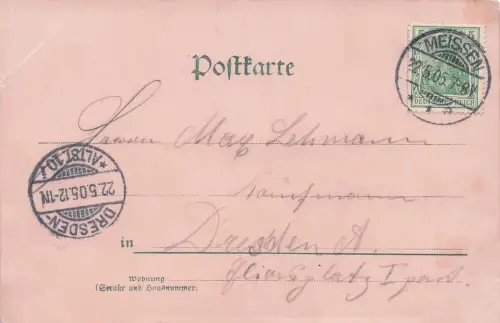 5 5
DEUTSCHES REICH
MEISSEN
22.5.05. 7-8V
* * a
Postkarte
Herrn Max Lehmann
Kaufmann
* ALTST. 10 r
22.5.05.12-1N
DRESDEN-
in Dresden A.
Wohnung
(Straße und Hausnummer)
platz I part.